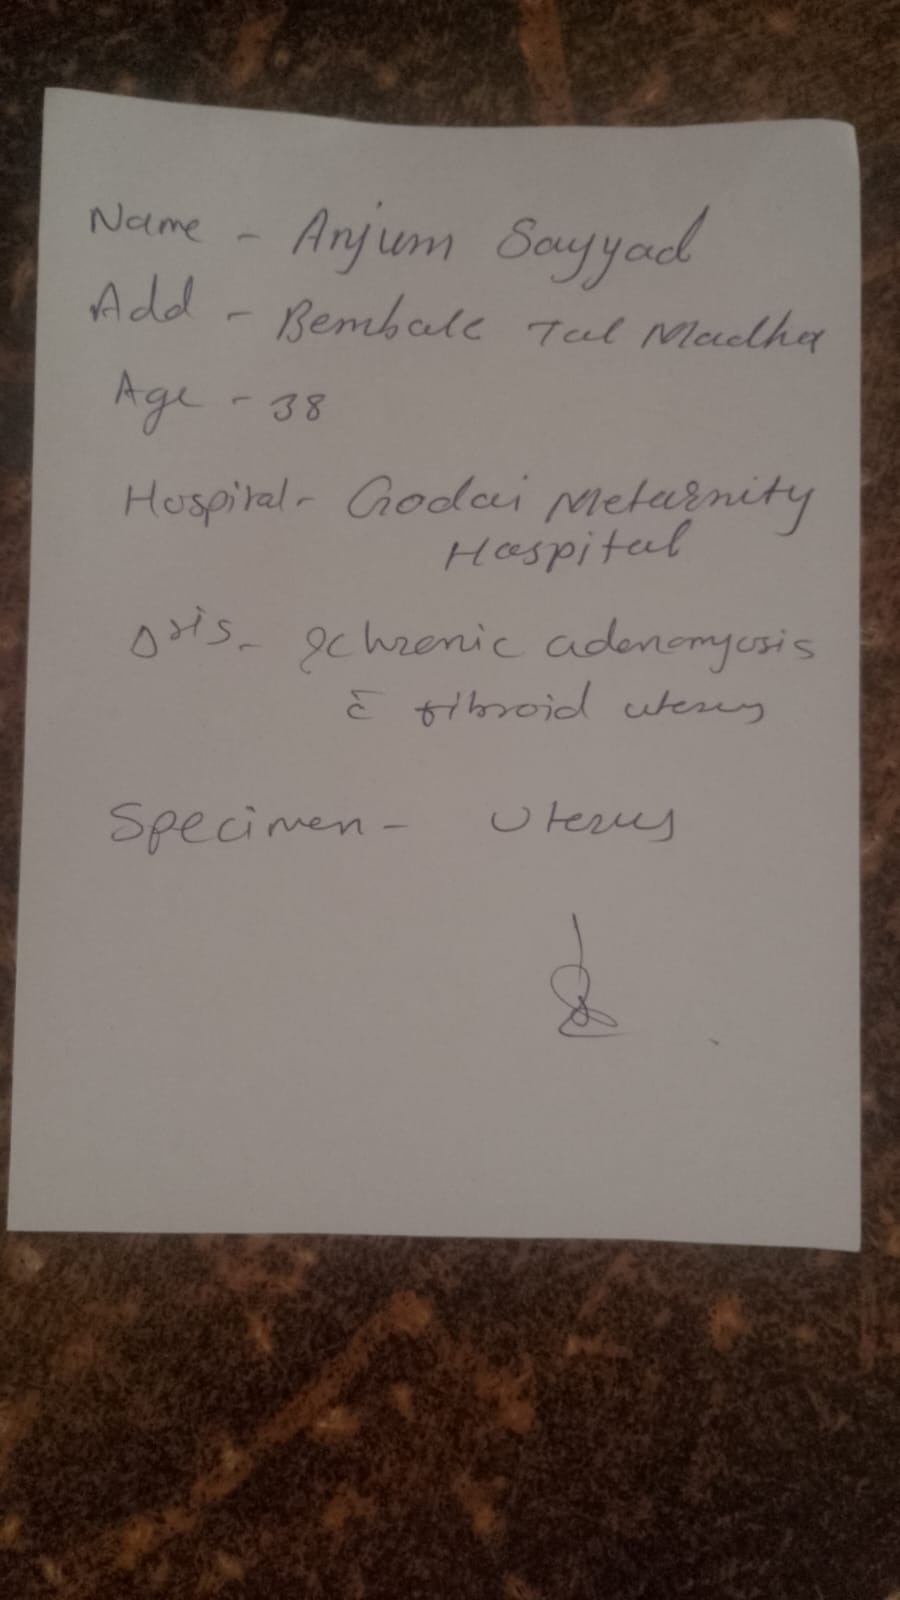 Name - Anjum Sayyad
Add - Bembale Tal Madha
Age - 38
Hospital - Godai Metarnity
Hospital
∆sis - chronic adenomyosis
c̄ fibroid uterus
Specimen - Uterus